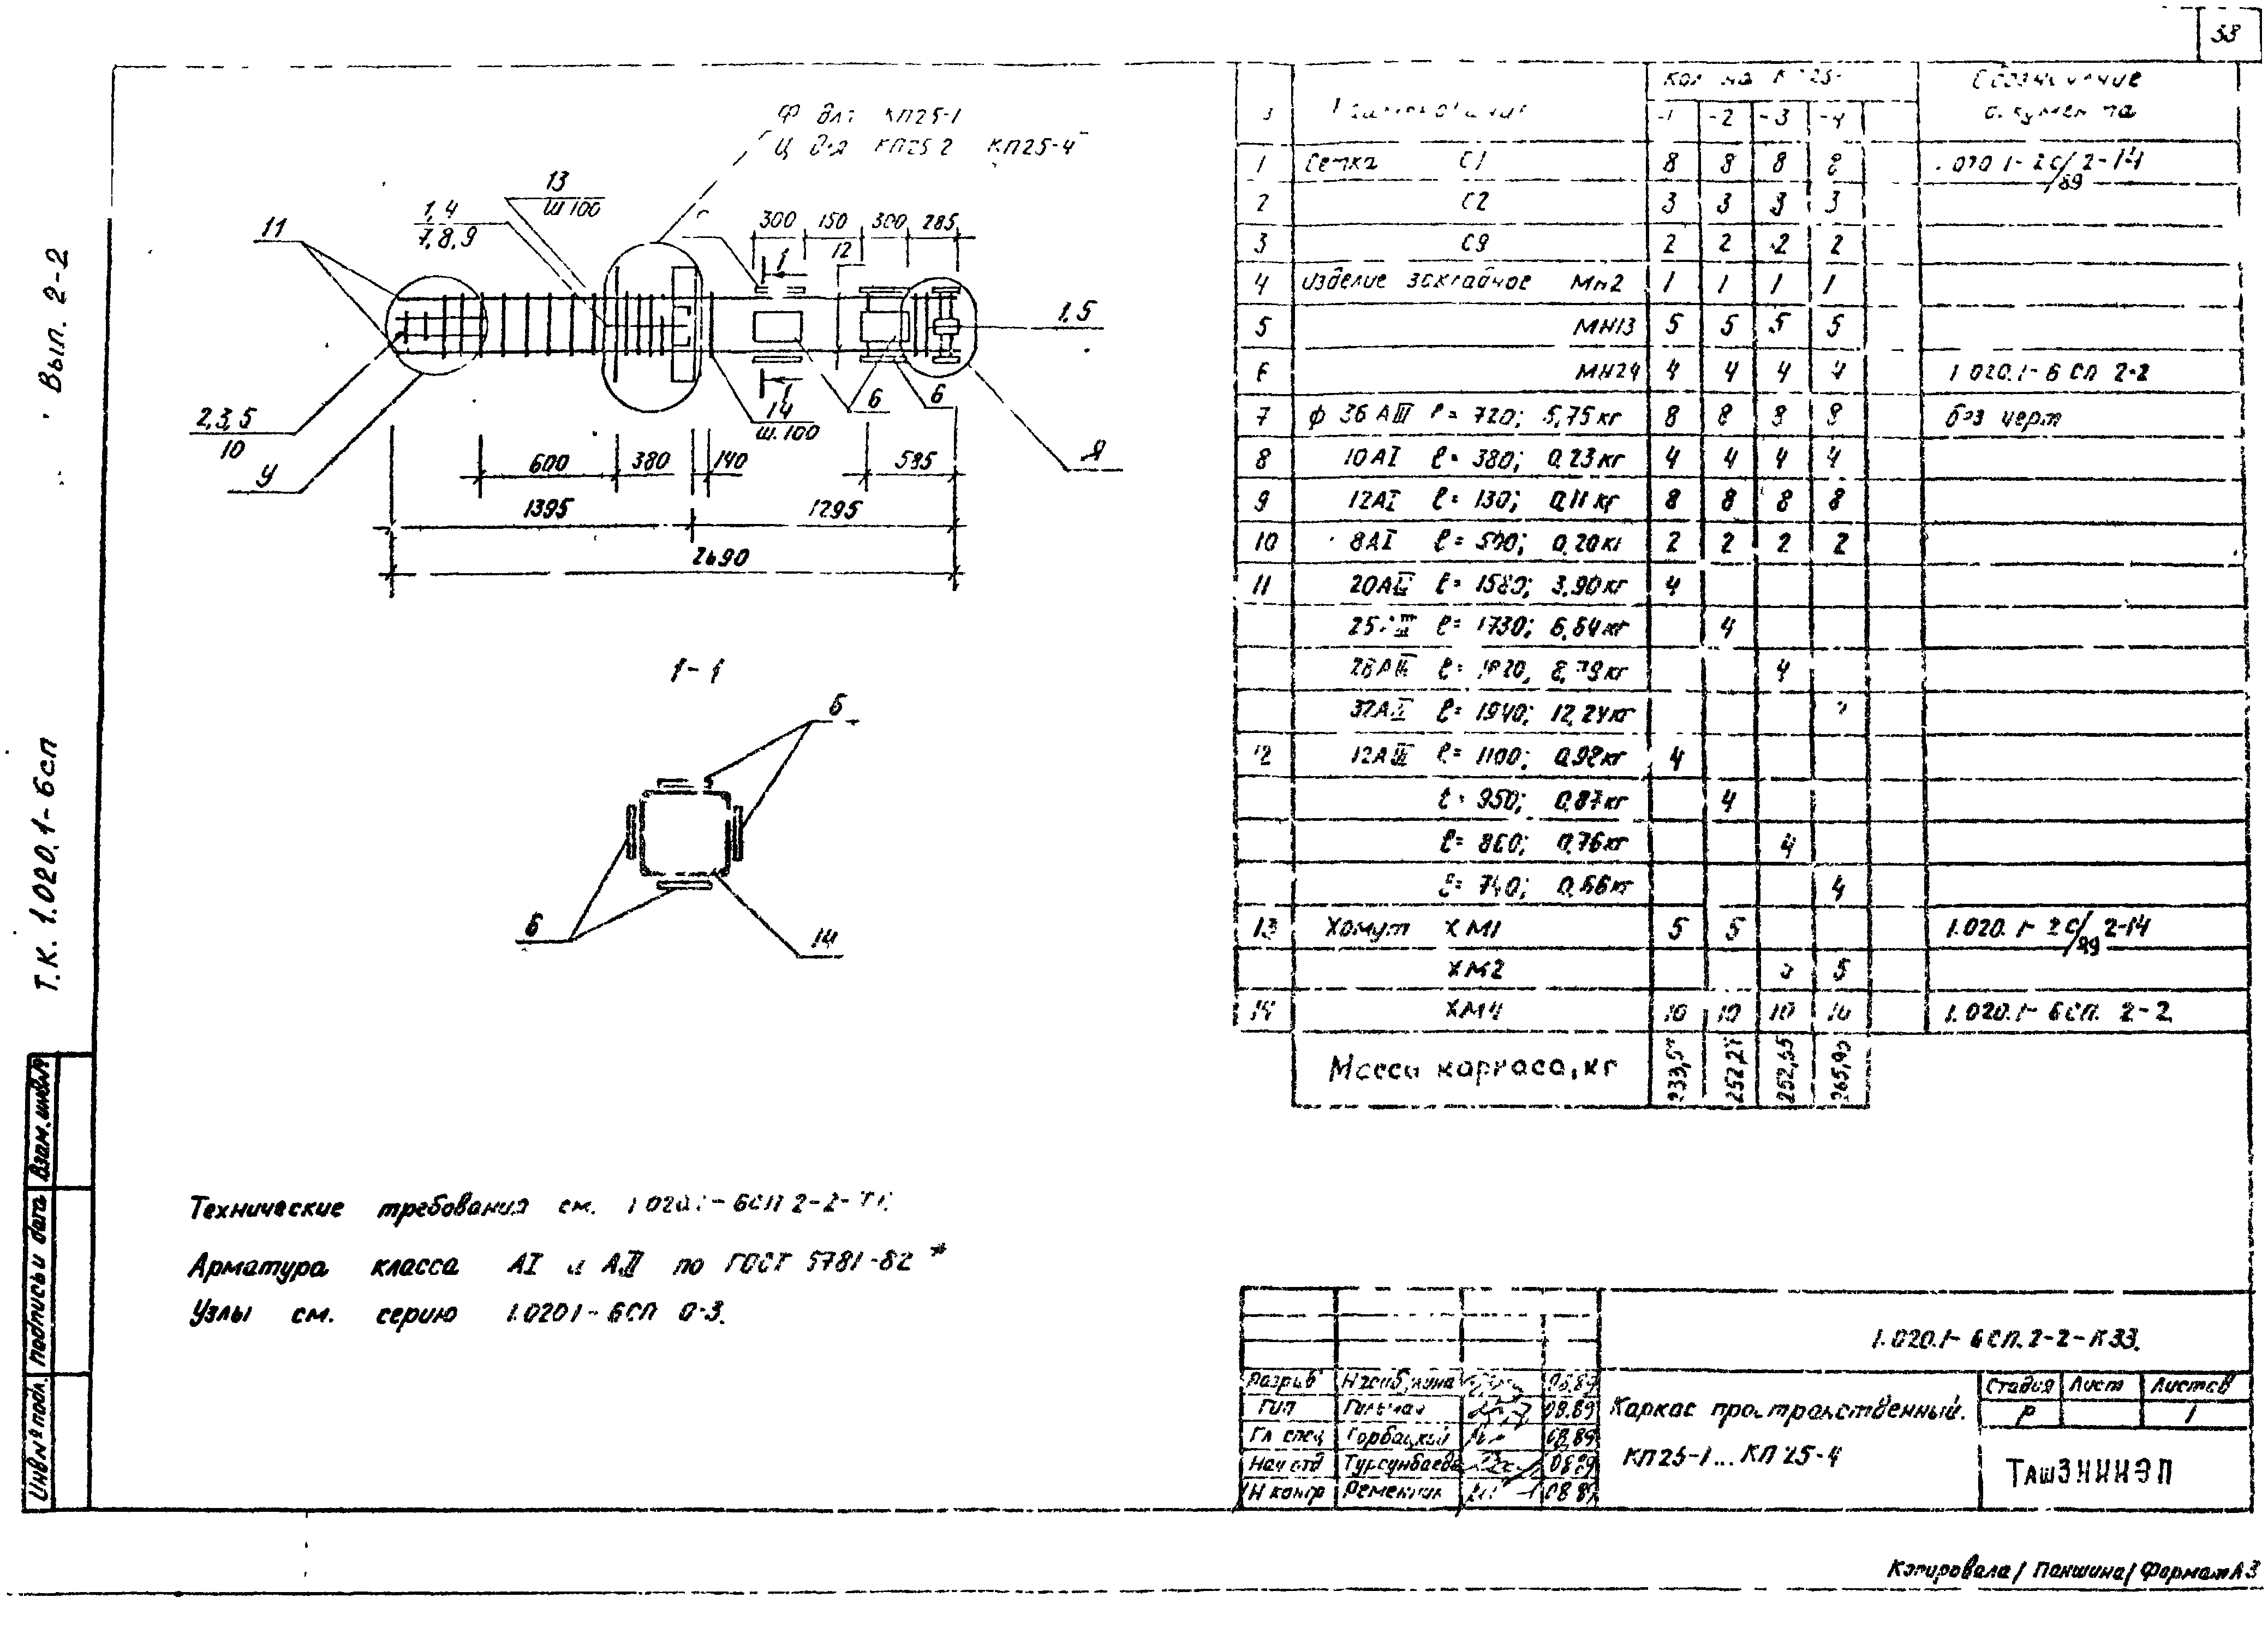 38
Вып. 2-2
Т.К. 1.020.1-6сп
Взам. инв.№
Подпись и дата
Инв № подл.
Ф для КП25-1
Ц для КП25-2 КП25-4
13
ш 100
1,4
7,8,9
11
300 150 300 285
12
1
1,5
2,3,5
10
У
14
ш.100
1
6
6
Я
600 380 140 595
1395 1295
2690
1-1
6
6
14
Кол на КП25-
Обозначение
документа
Наименование
-1 -2 -3 -4
1 Сетка С1 8 8 8 8 .020 1-2с/89 2-14
2 С2 3 3 3 3
3 С9 2 2 2 2
4 Изделие закладное Мн2 1 1 1 1
5 МН13 5 5 5 5
6 МН24 4 4 4 4 1 020.1-6 СП 2-2
7 ф 36 АIII ℓ= 720; 5,75кг 8 8 8 8 без черт
8 10АI ℓ= 380; 0,23кг 4 4 4 4
9 12АI ℓ= 130; 0,11кг 8 8 8 8
10 8АI ℓ= 500; 0,20кг 2 2 2 2
11 20АIII ℓ= 1580; 3,90кг 4
25АIII ℓ= 1730; 6,64кг 4
28АIII ℓ= 1820, кг 4
32АIII ℓ= 1940; 12,24кг
12 12АIII ℓ= 1100; 0,98кг 4
ℓ= 950; 0,87кг 4
ℓ= 860; 0,76кг 4
ℓ= 740; 0,66кг 4
13 Хомут ХМ1 5 5 1.020.1-2с/89 2-14
ХМ2 5
14 ХМ4 10 10 10 10 1.020.1-6СП. 2-2
Масса каркаса, кг 252,65 265,95
Технические требования см. 1.020.1-6СП 2-2-
Арматура класса АI и АIII по ГОСТ 5781-82*
Узлы см. серию 1.020 1-6СП 0-3.
1.020.1-6СП.2-2-К33.
Разраб 08.89
ГИП Гильман 08.89
Гл спец Горбацкий 08.89
Нач отд Турсунбаева 08.89
Н контр 08.89
Каркас пространственный.
КП25-1...КП25-4
Стадия Лист Листов
Р 1
ТашЗНИИЭП
Копировала /Паншина/ Формат А3